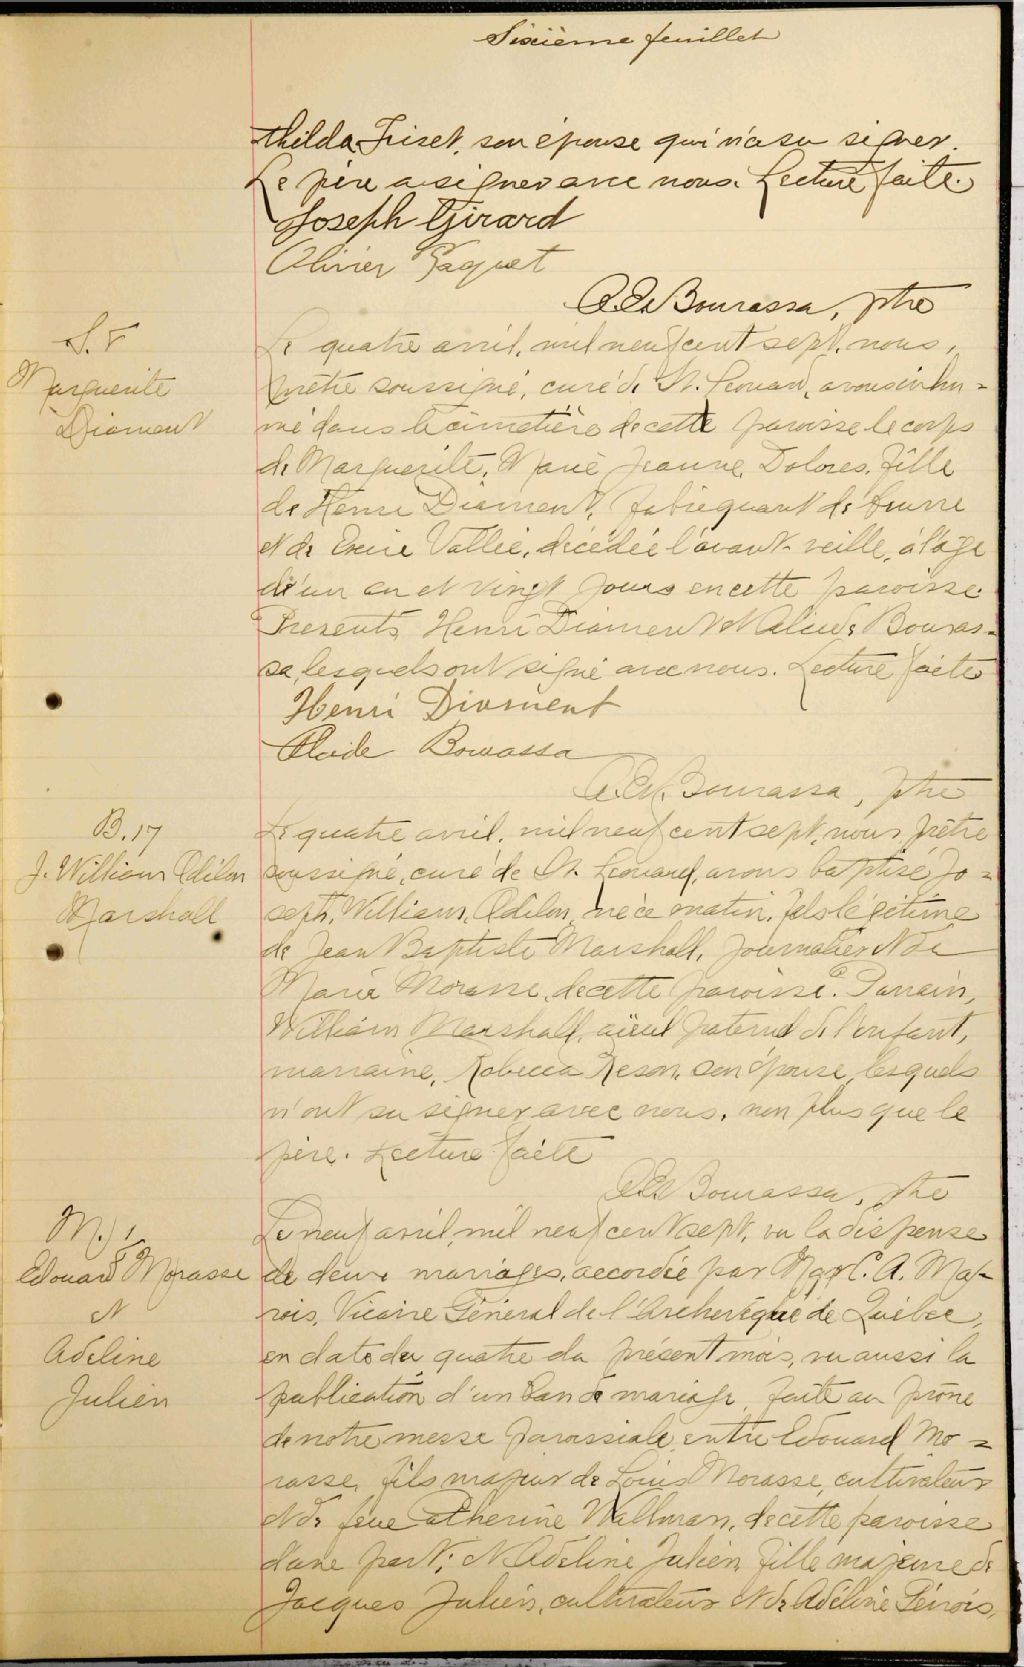 Sixième feuillet
thilda Friset, son épouse qui n'a su signer.
Le père a signer avec nous. Lecture faite.
Joseph Girard
Olivier Paquet
A. E. Bourassa, ptre
S. 5
Marguerite
Diament
Le quatre avril, mil neuf cent sept, nous,
prêtre soussigné, curé de St. Léonard, avons inhu=
mé dans le cimetière de cette paroisse le corps
de Marguerite, Marie Jeanne, Dolores, fille
de Henri Diament, fabriquant de beurre
et de Vallée, décédée l'avant-veille, à l'age
d'un an et vingt jours en cette paroisse.
Presents Henri Diament et Alcide Bouras-
sa, lesquels ont signé avec nous. Lecture faite
Henri Diament
Alcide Bourassa
A. E. Bourassa, ptre
B. 17
J. William Odilon
Marshall
Le quatre avril, mil neuf cent sept, nous prêtre
soussigné, curé de St. Léonard, avons baptisé Jo=
seph, William, Odilon, né ce matin, fils légitime
de Jean Baptiste Marshall, journalier et de
Marie Morasse, de cette paroisse. Parrain,
William Marshall, aïeul paternel de l'enfant,
marraine, Rebecca son épouse, lesquels
n'ont su signer avec nous, non plus que le
père. Lecture faite
A. E. Bourassa, ptre
M. 1
Edouard Morasse
et
Adéline
Julien
Le neuf avril, mil neuf cent sept, vu la dispense
de deux mariages, accordée par Mgr C. A. Ma-
rois, Vicaire Général de l'Archevêque de Québec,
en date du quatre du présent mois, vu aussi la
publication d'un ban de mariage, faite au prône
de notre messe paroissiale, entre Edouard Mo=
rasse, fils majeur de Louis Morasse, cultivateur
et de feue Catherine Wallman, de cette paroisse
d'une part; et Adéline Julien fille majeure de
Jacques Julien, cultivateur et de Adéline